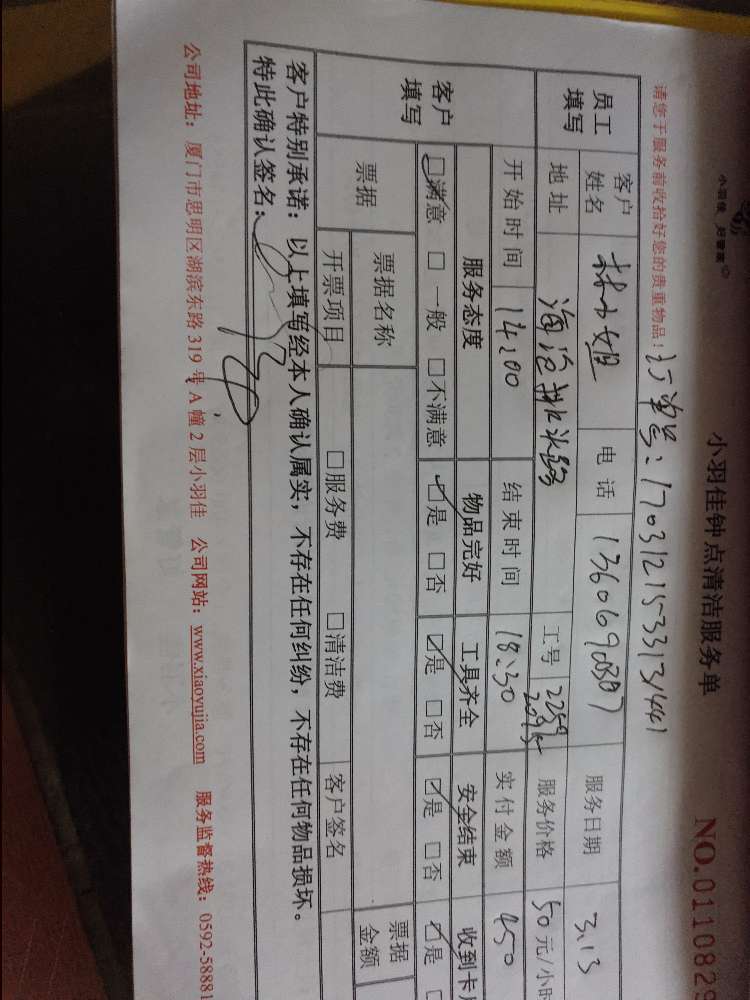 小羽佳 好管家
小羽佳钟点清洁服务单
NO.0110829
请您于服务前收拾好您的贵重物品！
订单号：1703121533131441
员工填写
客户姓名 林小姐 电话 13606900307 服务日期 3.13
地址 海沧 工号 2259 服务价格 50元/小时
开始时间 14:00 结束时间 18:30 实付金额 450
客户填写
服务态度 物品完好 工具齐全 安全结束 收到卡
☑满意 □一般 □不满意 ☑是 □否 ☑是 □否 ☑是 □否 ☑是
票据 票据名称 票据金额
开票项目 □服务费 □清洁费 客户签名
客户特别承诺：以上填写经本人确认属实，不存在任何纠纷，不存在任何物品损坏。
特此确认签名：
公司地址：厦门市思明区湖滨东路319号A幢2层小羽佳 公司网站：www.xiaoyujia.com 服务监督热线：0592-58881